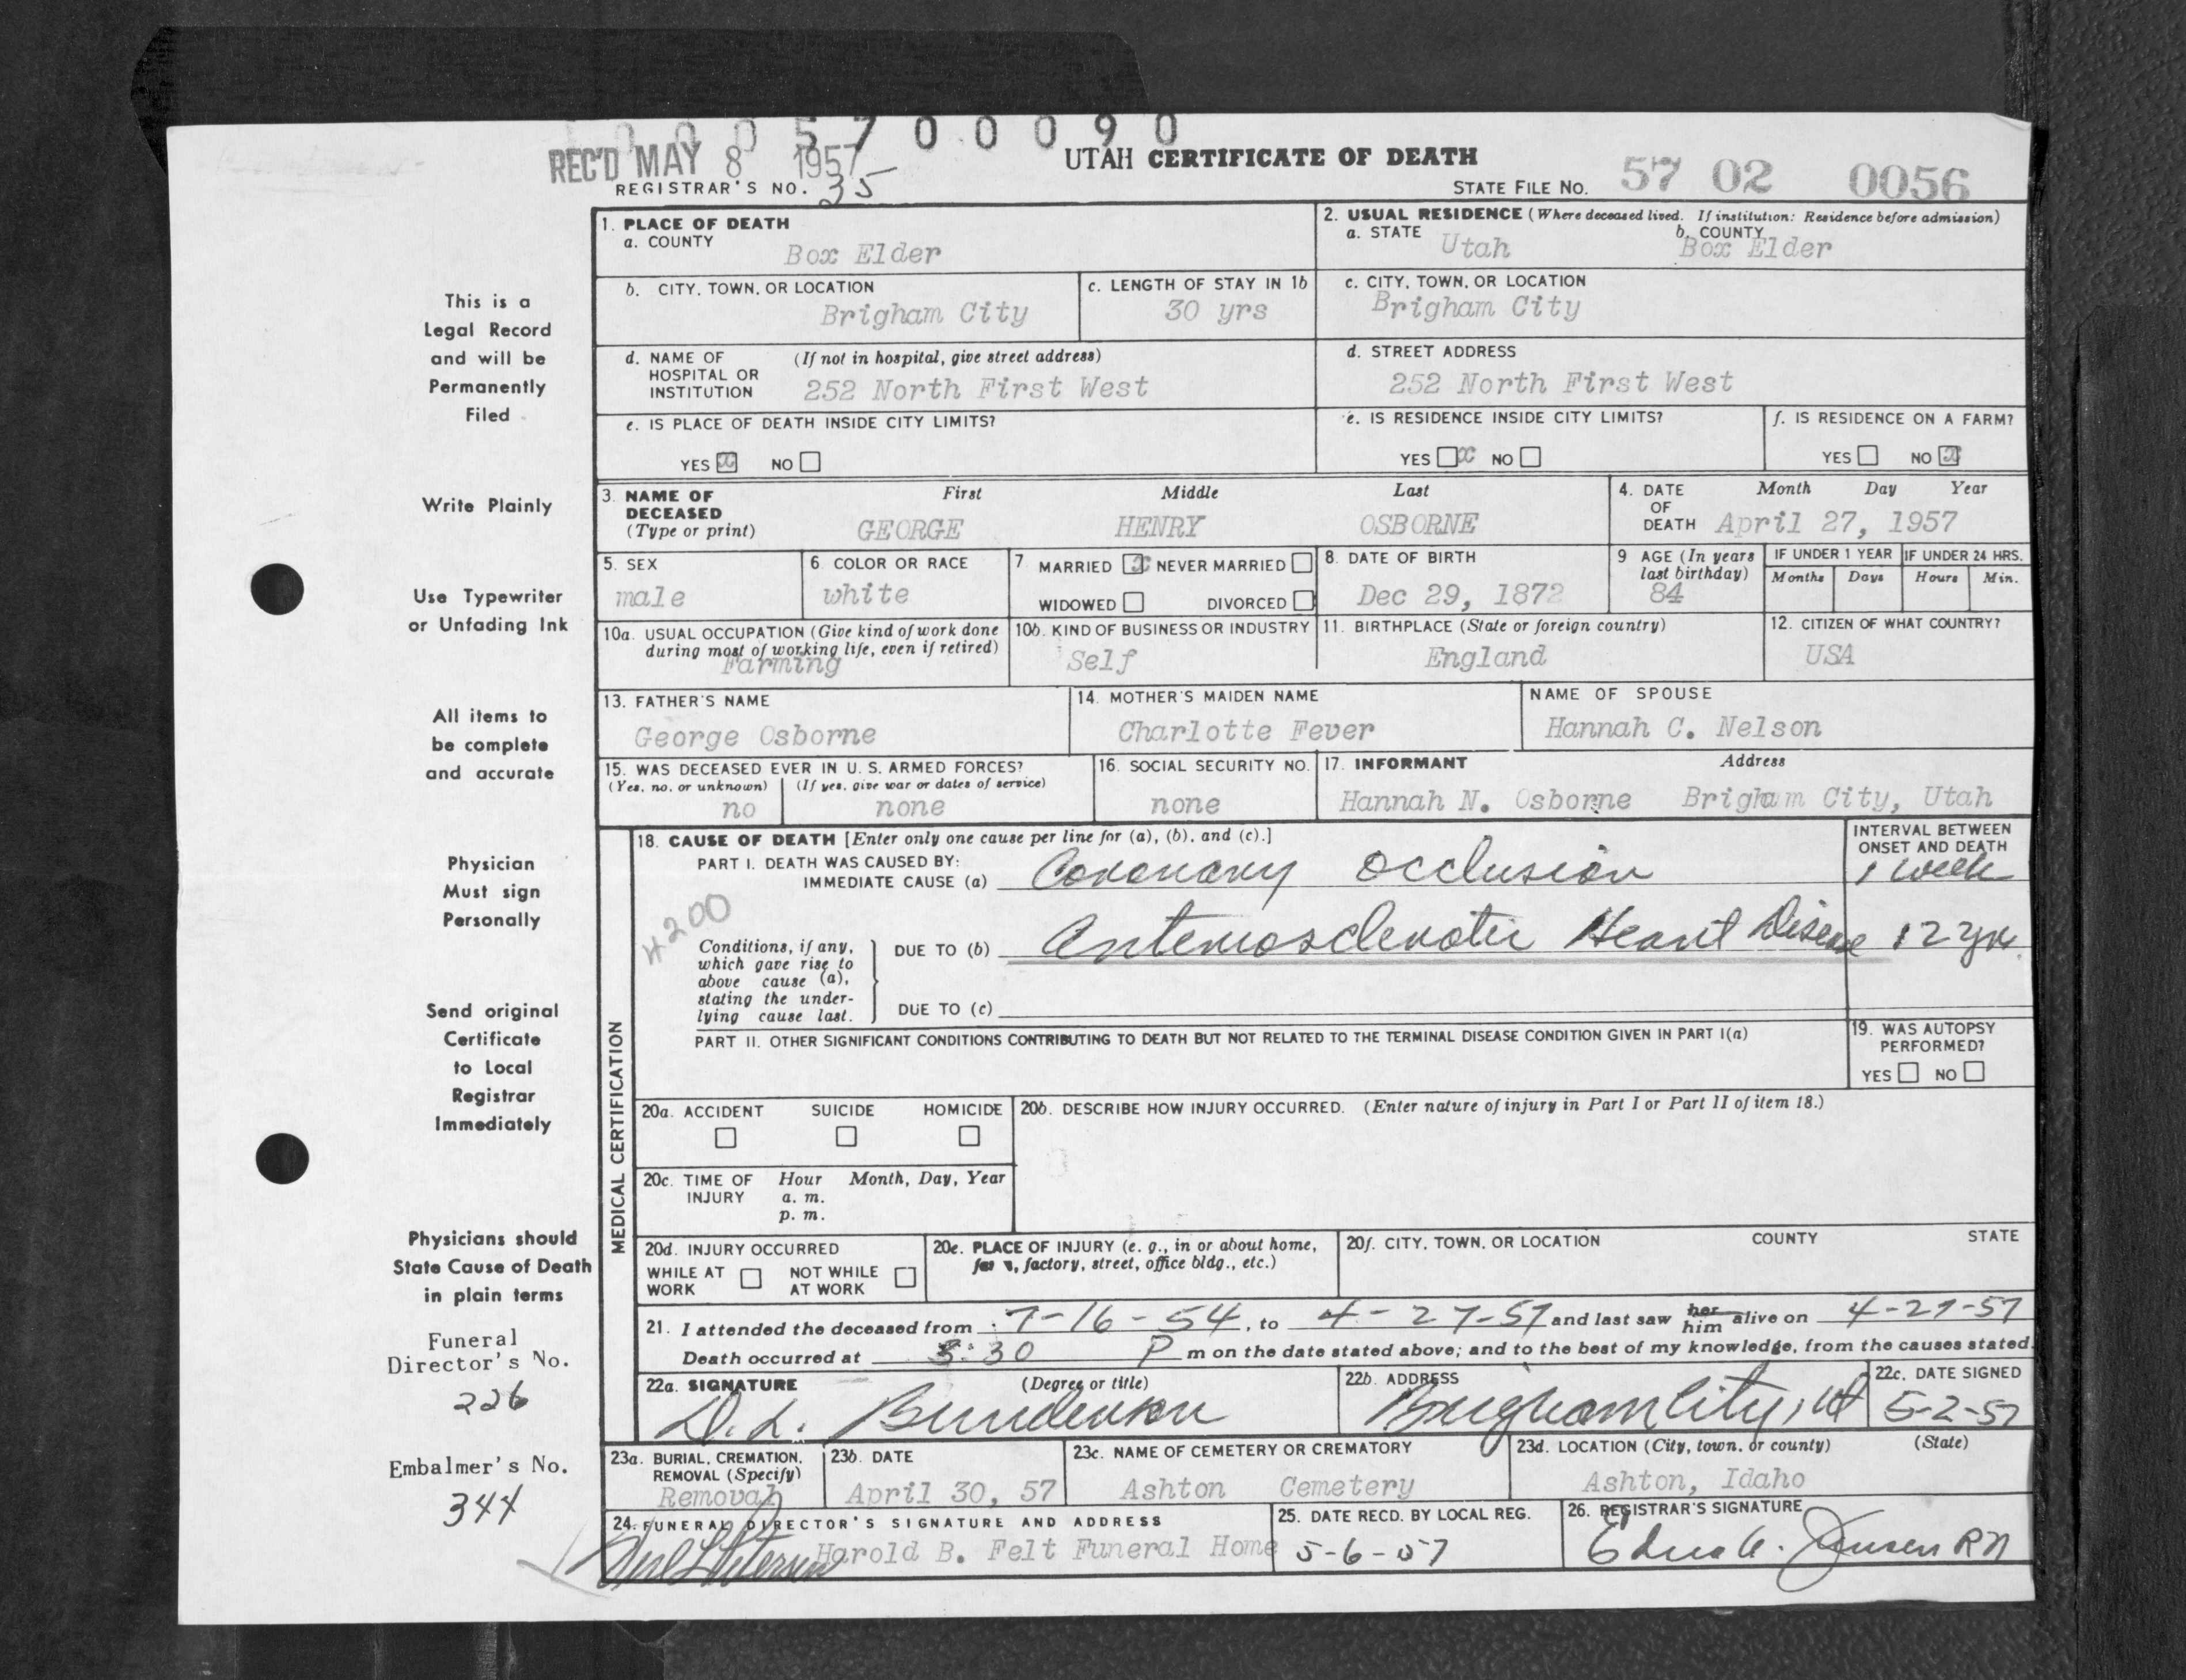 00057 00090
REC'D MAY 8 1957
UTAH CERTIFICATE OF DEATH
REGISTRAR'S NO. 35
STATE FILE NO. 57 02 0056
This is a
Legal Record
and will be
Permanently
Filed
Write Plainly
Use Typewriter
or Unfading Ink
All items to
be complete
and accurate
Physician
Must sign
Personally
Send original
Certificate
to Local
Registrar
Immediately
Physicians should
State Cause of Death
in plain terms
Funeral
Director's No.
226
Embalmer's No.
344
1. PLACE OF DEATH
a. COUNTY
Box Elder
2. USUAL RESIDENCE (Where deceased lived. If institution: Residence before admission)
a. STATE Utah b. COUNTY Box Elder
b. CITY, TOWN, OR LOCATION
Brigham City
c. LENGTH OF STAY IN 1b
30 yrs
c. CITY, TOWN, OR LOCATION
Brigham City
d. NAME OF HOSPITAL OR INSTITUTION (If not in hospital, give street address)
252 North First West
d. STREET ADDRESS
252 North First West
e. IS PLACE OF DEATH INSIDE CITY LIMITS?
YES x NO
e. IS RESIDENCE INSIDE CITY LIMITS?
YES x NO
f. IS RESIDENCE ON A FARM?
YES NO x
3. NAME OF DECEASED (Type or print)
First Middle Last
GEORGE HENRY OSBORNE
4. DATE OF DEATH Month Day Year
April 27, 1957
5. SEX
male
6. COLOR OR RACE
white
7 MARRIED x NEVER MARRIED
WIDOWED DIVORCED
8. DATE OF BIRTH
Dec 29, 1872
9 AGE (In years last birthday)
84
IF UNDER 1 YEAR
Months Days
IF UNDER 24 HRS.
Hours Min.
10a. USUAL OCCUPATION (Give kind of work done during most of working life, even if retired)
Farming
10b. KIND OF BUSINESS OR INDUSTRY
Self
11. BIRTHPLACE (State or foreign country)
England
12. CITIZEN OF WHAT COUNTRY?
USA
13. FATHER'S NAME
George Osborne
14. MOTHER'S MAIDEN NAME
Charlotte Fever
NAME OF SPOUSE
Hannah C. Nelson
15. WAS DECEASED EVER IN U. S. ARMED FORCES?
(Yes, no, or unknown) (If yes, give war or dates of service)
no none
16. SOCIAL SECURITY NO.
none
17. INFORMANT Address
Hannah N. Osborne Brigham City, Utah
MEDICAL CERTIFICATION
18. CAUSE OF DEATH [Enter only one cause per line for (a), (b), and (c).]
PART I. DEATH WAS CAUSED BY:
IMMEDIATE CAUSE (a) Coronary Occlusion
INTERVAL BETWEEN
ONSET AND DEATH
1 week
4200
Conditions, if any,
which gave rise to
above cause (a),
stating the under-
lying cause last.
DUE TO (b) Arteriosclerotic Heart Disease 12 yrs.
DUE TO (c)
PART II. OTHER SIGNIFICANT CONDITIONS CONTRIBUTING TO DEATH BUT NOT RELATED TO THE TERMINAL DISEASE CONDITION GIVEN IN PART I(a)
19. WAS AUTOPSY PERFORMED?
YES NO
20a. ACCIDENT SUICIDE HOMICIDE
20b. DESCRIBE HOW INJURY OCCURRED. (Enter nature of injury in Part I or Part II of item 18.)
20c. TIME OF INJURY Hour Month, Day, Year
a. m.
p. m.
20d. INJURY OCCURRED
WHILE AT WORK NOT WHILE AT WORK
20e. PLACE OF INJURY (e. g., in or about home,
farm, factory, street, office bldg., etc.)
20f. CITY, TOWN, OR LOCATION COUNTY STATE
21. I attended the deceased from 7-16-54, to 4-27-57 and last saw her him alive on 4-27-57
Death occurred at 3:30 P m on the date stated above; and to the best of my knowledge, from the causes stated.
22a. SIGNATURE (Degree or title)
D. L. Bunderson
22b. ADDRESS
Brigham City, Ut
22c. DATE SIGNED
5-2-57
23a. BURIAL, CREMATION, REMOVAL (Specify)
Removal
23b. DATE
April 30, 57
23c. NAME OF CEMETERY OR CREMATORY
Ashton Cemetery
23d. LOCATION (City, town, or county) (State)
Ashton, Idaho
24. FUNERAL DIRECTOR'S SIGNATURE AND ADDRESS
Harold B. Felt Funeral Home
25. DATE RECD. BY LOCAL REG.
5-6-57
26. REGISTRAR'S SIGNATURE
Jensen RN